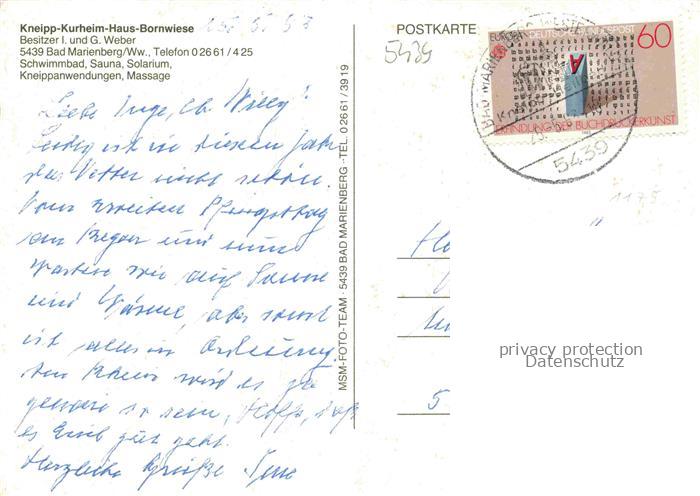 Kneipp-Kurheim-Haus-Bornwiese
Besitzer I. und G. Weber
5439 Bad Marienberg/Ww., Telefon 0 26 61 / 4 25
Schwimmbad, Sauna, Solarium,
Kneippanwendungen, Massage
Liebe Inge, lb. Willy!
Leider ist in diesem Jahr
das Wetter nicht schön.
Vom zweiten Pfingsttag
an Regen und nun
warten wir auf Sonne
und Wärme, aber sonst
ist alles in Ordnung.
Am Rhein wird es
genauso so sein, Hoffe, daß
es Euch gut geht.
Herzliche Grüße
MSM-FOTO-TEAM · 5439 BAD MARIENBERG · TEL. 0 26 61 / 39 19
POSTKARTE
5439
EUROPA
DEUTSCHE BUNDESPOST
60
A
ERFINDUNG DER BUCHDRUCKERKUNST
BAD MARIENBERG, WESTERW
5439
1175
5
privacy protection
Datenschutz